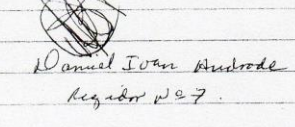 Daniel Ivan Andrade
Regidor Nº 7.